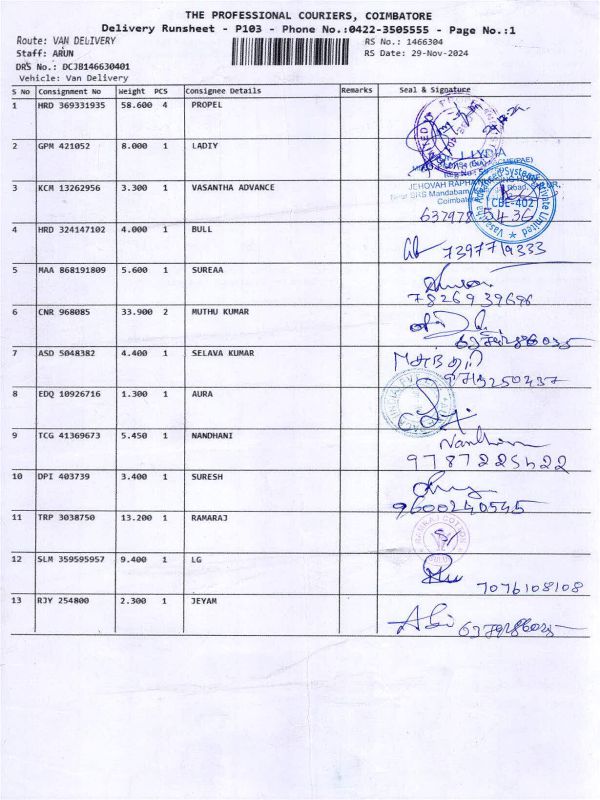 THE PROFESSIONAL COURIERS, COIMBATORE
Delivery Runsheet - P103 - Phone No.:0422-3505555 - Page No.:1
Route: VAN DELIVERY
RS No.: 1466304
Staff: ARUN
RS Date: 29-Nov-2024
DRS No.: DCJB146630401
Vehicle: Van Delivery
S No Consignment No Weight PCS Consignee Details Remarks Seal & Signature
1 HRD 369331935 58.600 4 PROPEL
2 GPM 421052 8.000 1 LADIY
LYDIA
JEHOVAH RAPHA
3 KCM 13262956 3.300 1 VASANTHA ADVANCE
Near SRS Mandabam
Coimbatore
Vasantha Advanced Systems Private Limited
CBE-402
4 HRD 324147102 4.000 1 BULL
7397719333
5 MAA 868191809 5.600 1 SUREAA
7826939696
6 CNR 968085 33.900 2 MUTHU KUMAR
7 ASD 5048382 4.400 1 SELAVA KUMAR
9715250437
8 EDQ 10926716 1.300 1 AURA
9 TCG 41369673 5.450 1 NANDHANI
9787225422
10 DPI 403739 3.400 1 SURESH
9600240545
11 TRP 3038750 13.200 1 RAMARAJ
RAMRAJ COTTON
12 SLM 359595957 9.400 1 LG
7076108108
13 RJY 254800 2.300 1 JEYAM